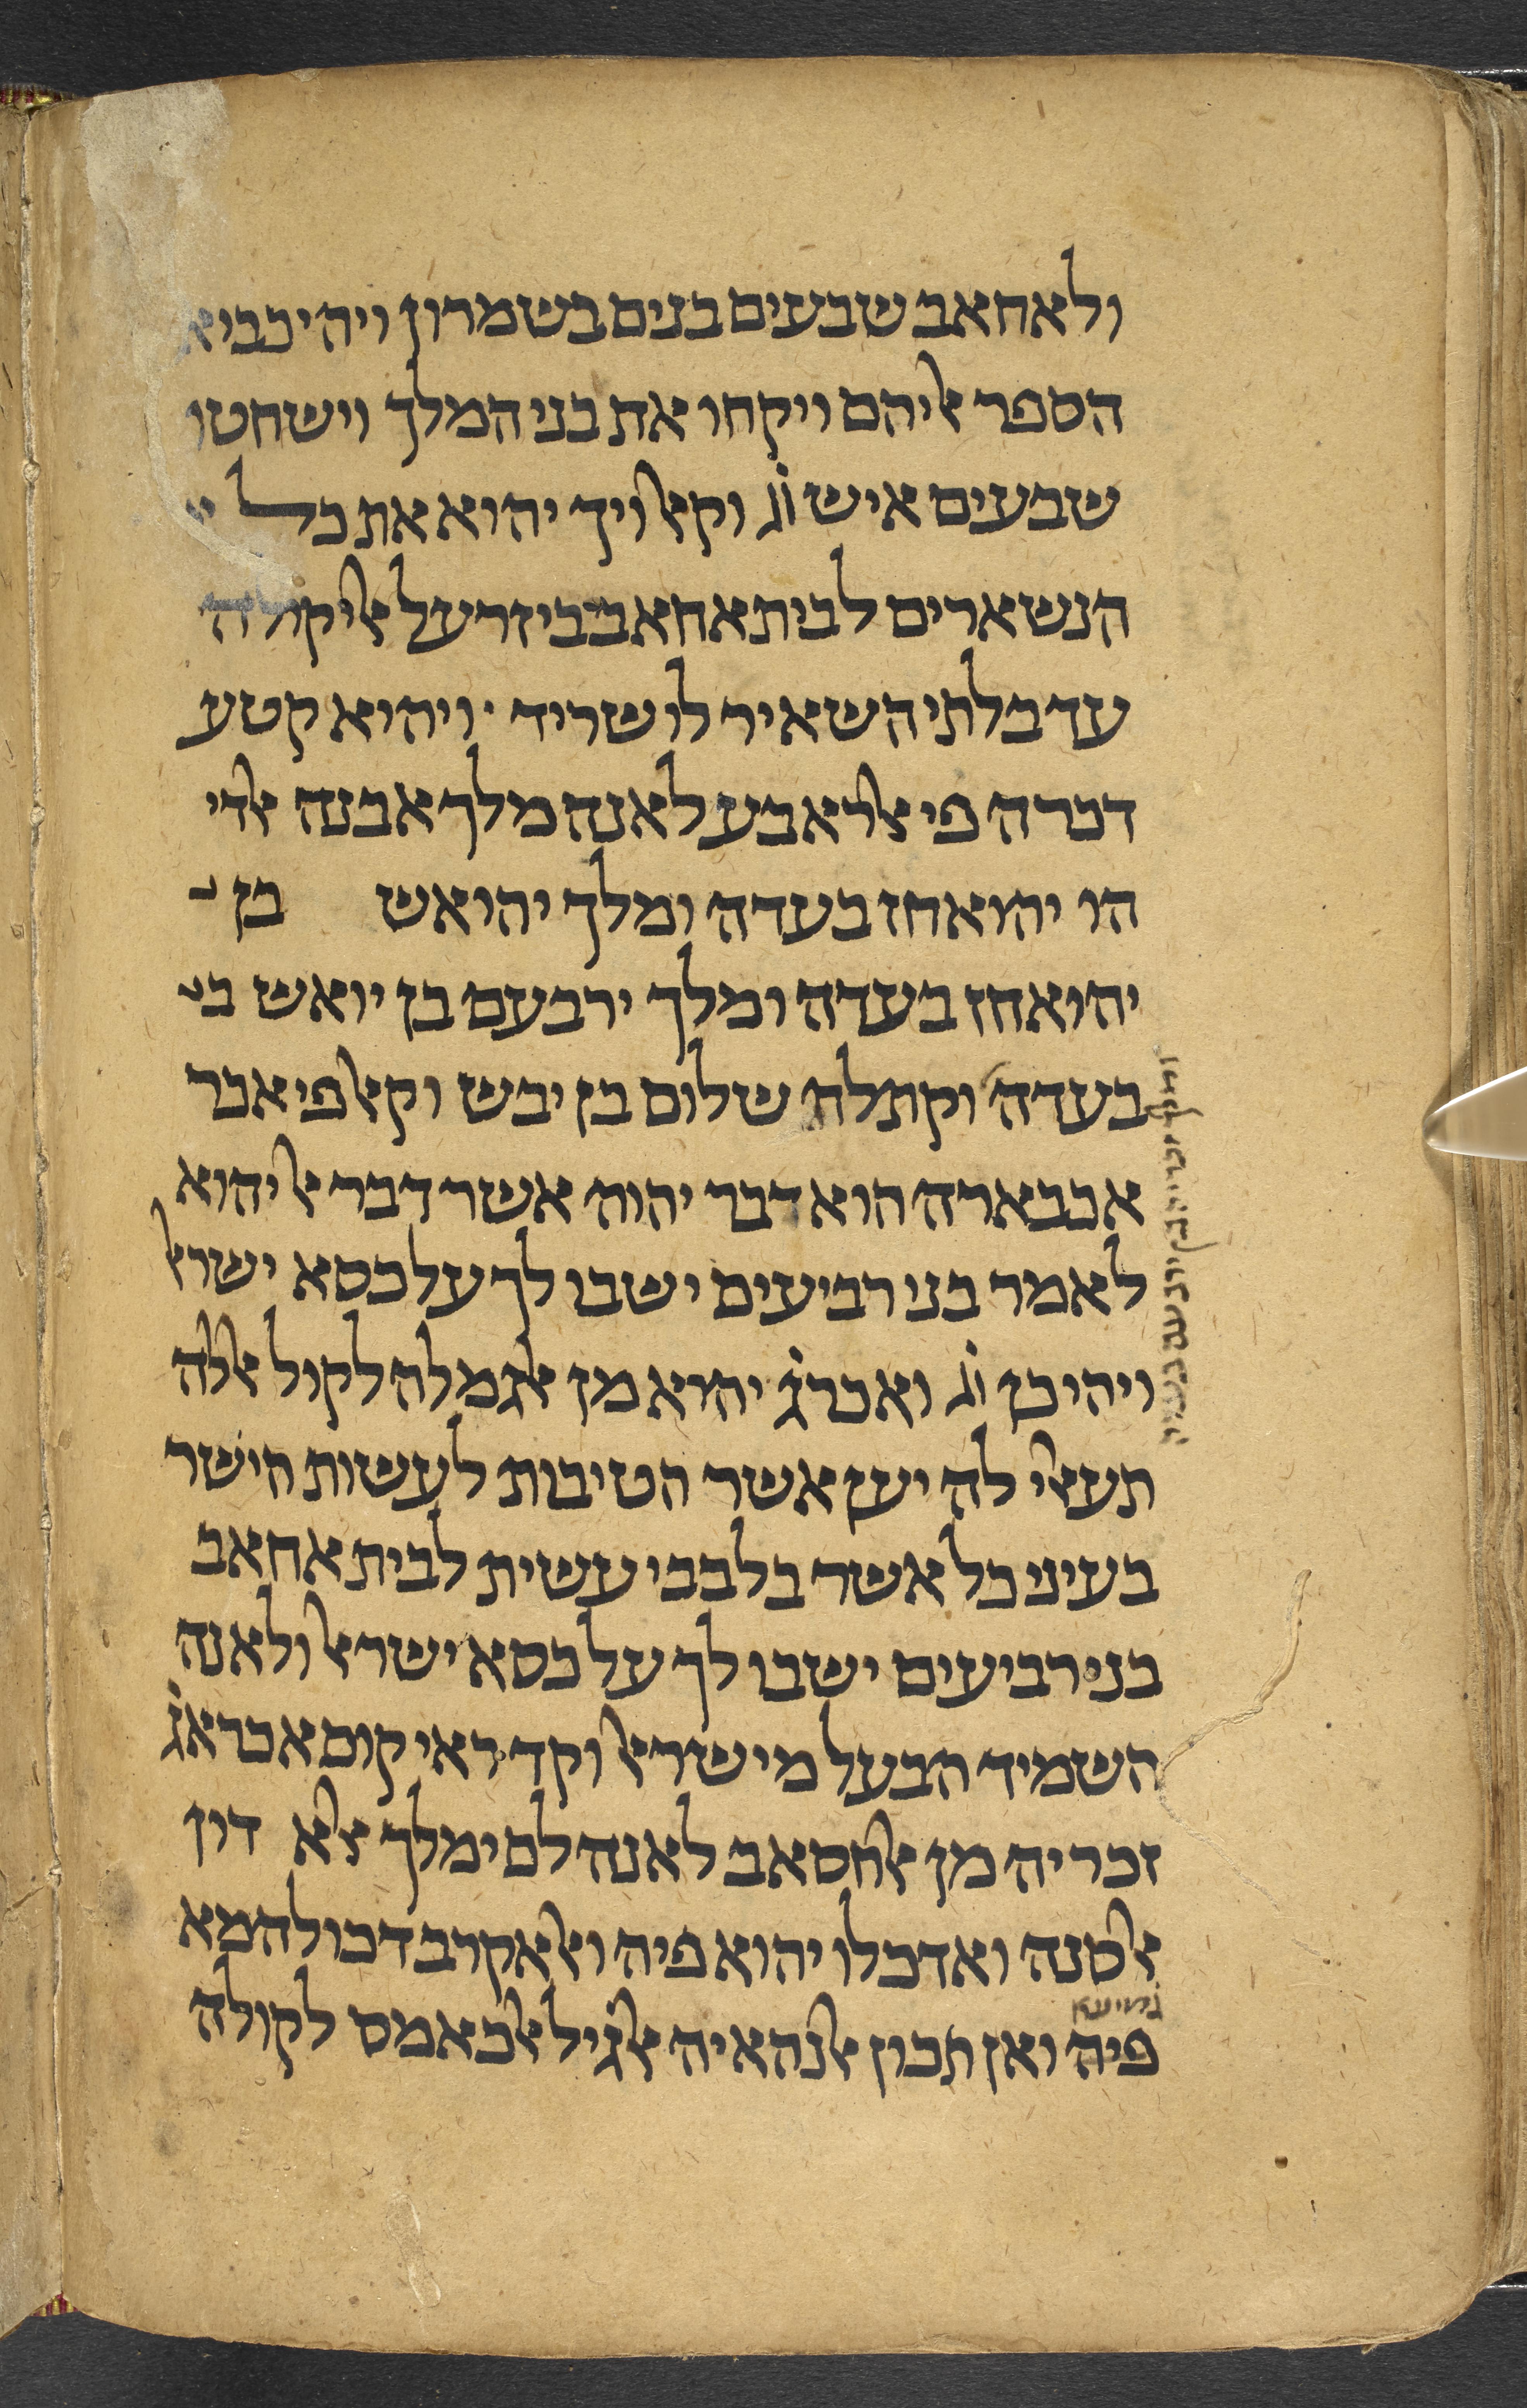 ולאחאב שבעים בנים בשמרון ויהי כבוא
הספר אליהם ויקחו את בני המלך וישחטו
שבעים איש וג׳ וקאל ויך יהוא את כל
הנשארים לבית אחאב ביזרעאל אלי קולה
עד בלתי השאיר לו שריד · ויהוא קטע
דכרה פי אלראבע לאנה מלך אבנה אלדי
הו יהואחז בעדה ומלך יהואש בן
יהואחז בעדה ומלך ירבעם בן יואש
בעדה וקתלה שלום בן יבש וקאל פי אכר
אכבארה הוא דבר יהוה אשר דבר אל יהוא
לאמר בני רביעים ישבו לך על כסא ישראל
ויהי כן וג׳ ואכרג׳ יהוא מן אלג׳מלה לקול אללה
תעאלי לה יען אשר הטיבות לעשות הישר
בעיני כל אשר בלבבי עשית לבית אחאב
בני רביעים ישבו לך על כסא ישראל ולאנה
השמיד הבעל מישראל וקד ראי קום אכראג׳
זכריה מן אלחסאב לאנה לם ימלך אלא דון
אלסנה ואדכלו יהוא פיה ואלאקרב דכולהמא
ג׳מיעא
פיה ואן תכון אלנהאיה אלג׳יל אלכאמס לקולה